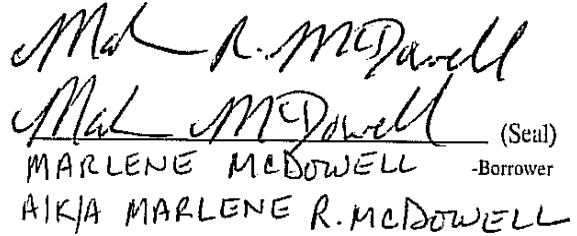 Mal R. McDowell
Mal McDowell (Seal)
MARLENE MCDOWELL -Borrower
A/K/A MARLENE R. MCDOWELL